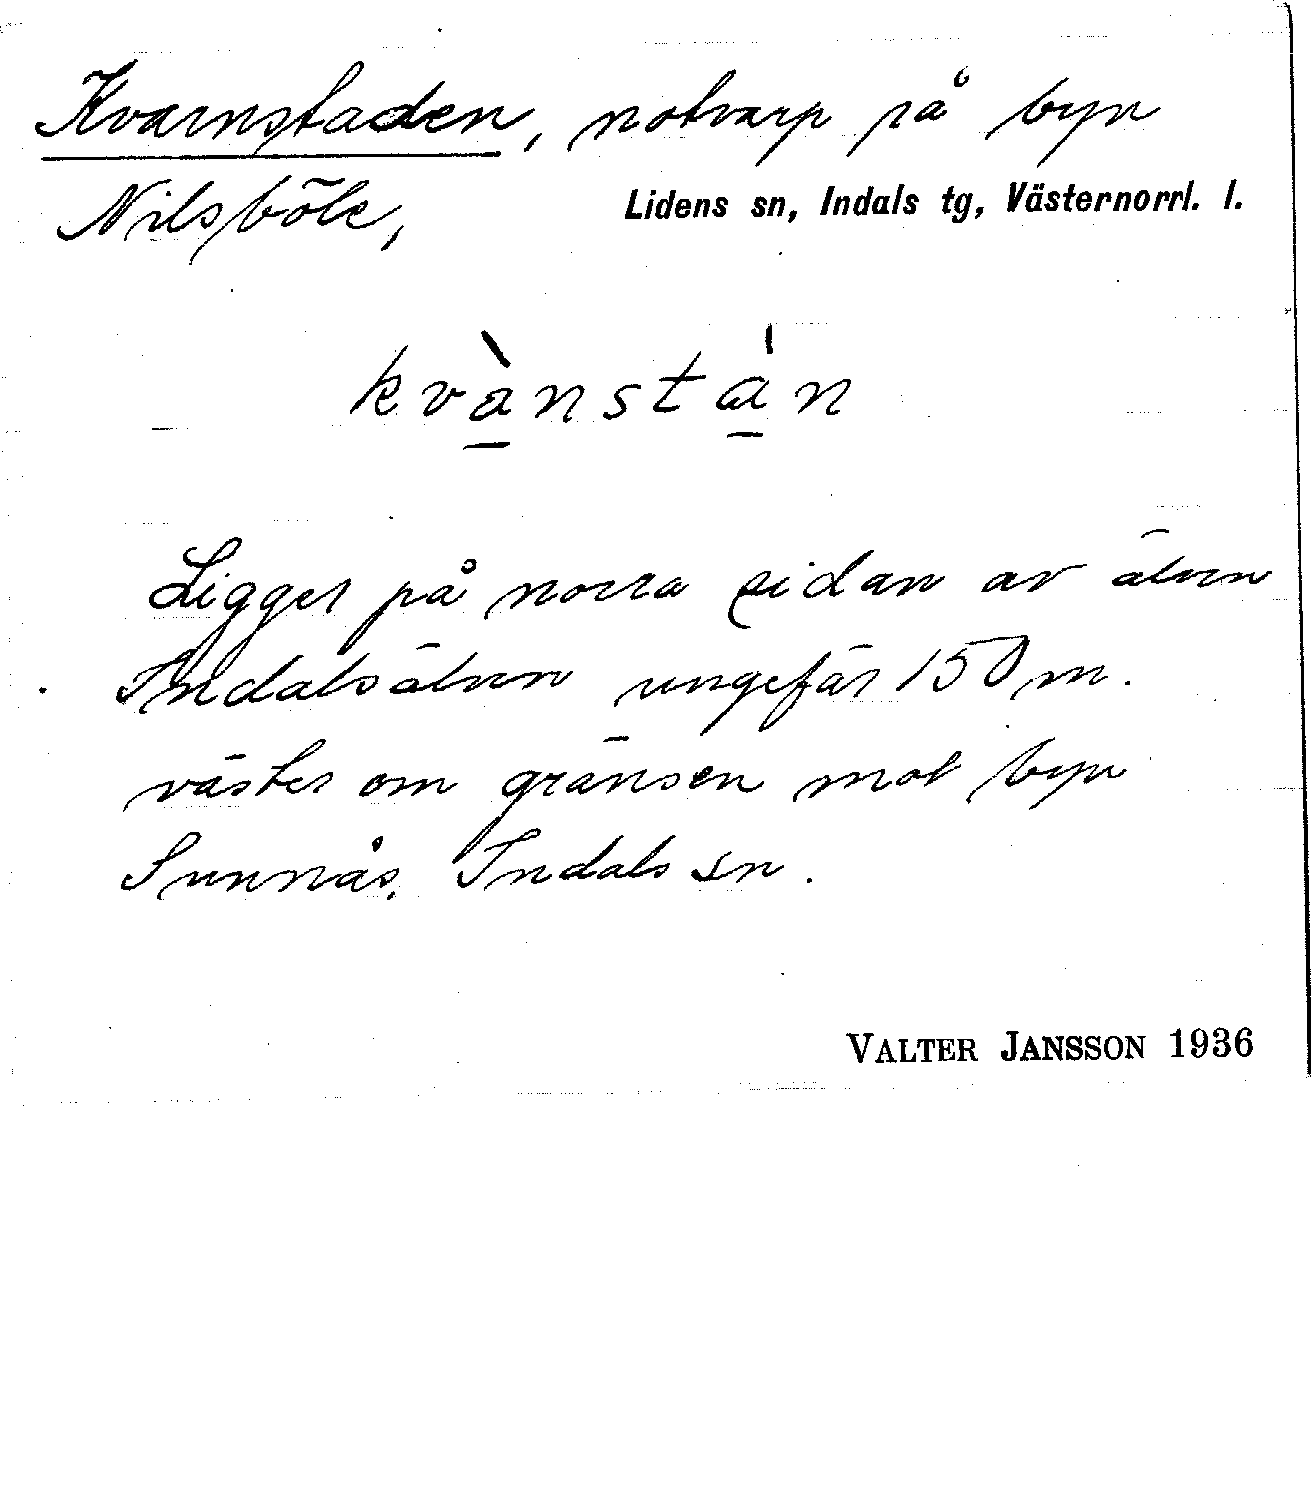 Kvarnstaden, notvarp på byn
Nilsböle, Lidens sn, Indals tg, Västernorrl. l.
kvànstá̀n
Ligger på norra sidan av älven
Indalsälven ungefär 150 m.
väster om gränsen mot byn
Sunnås, Indals sn.
VALTER JANSSON 1936